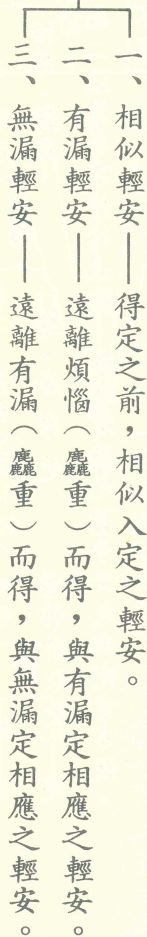 一、相似輕安——得定之前，相似入定之輕安。
二、有漏輕安——遠離煩惱（麤重）而得，與有漏定相應之輕安。
三、無漏輕安——遠離有漏（麤重）而得，與無漏定相應之輕安。